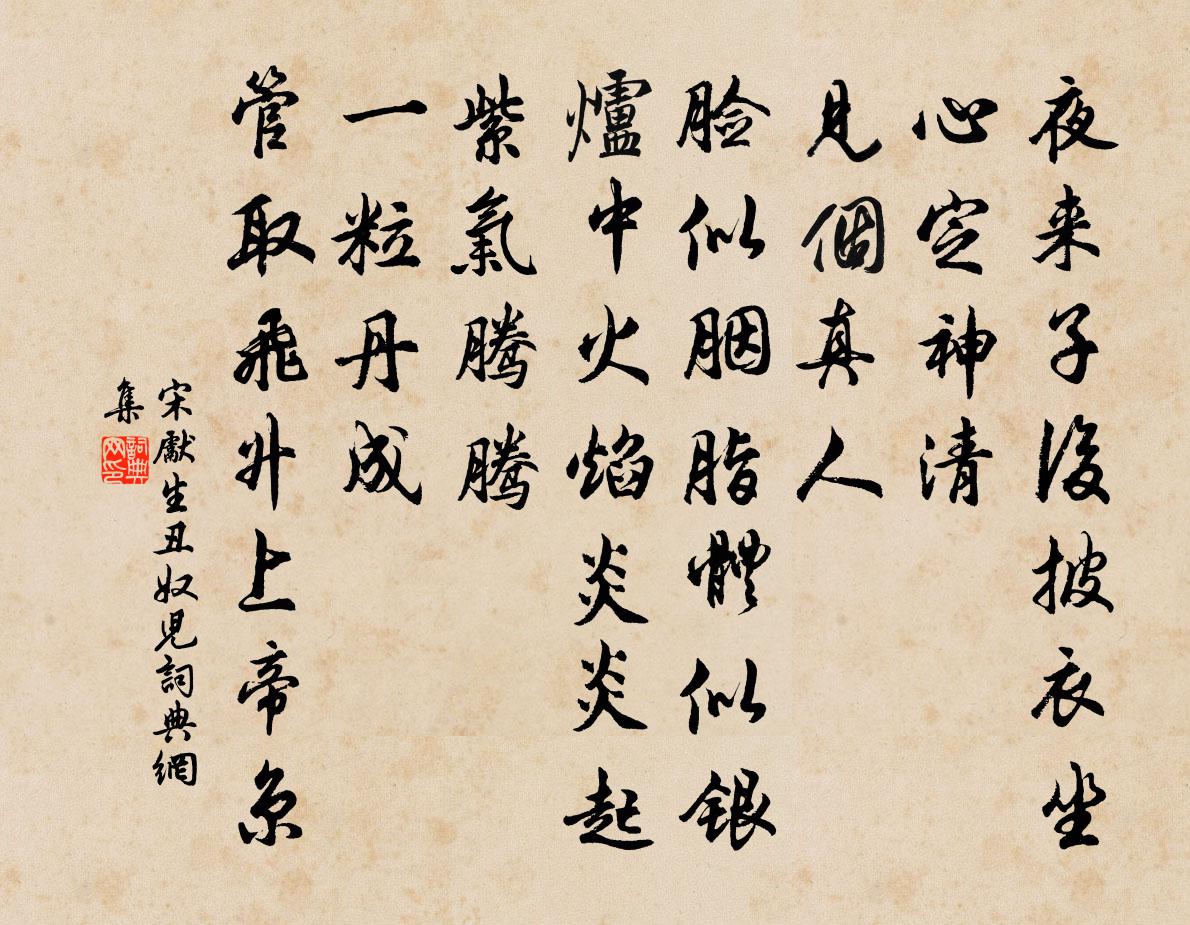 夜来子後披衣坐
心定神清
見個真人
脸似胭脂體似銀
爐中火焰炎炎起
紫氣騰騰
一粒丹成
管取飛升上帝京
宋獻生丑奴児詞典網
集
詞典网印